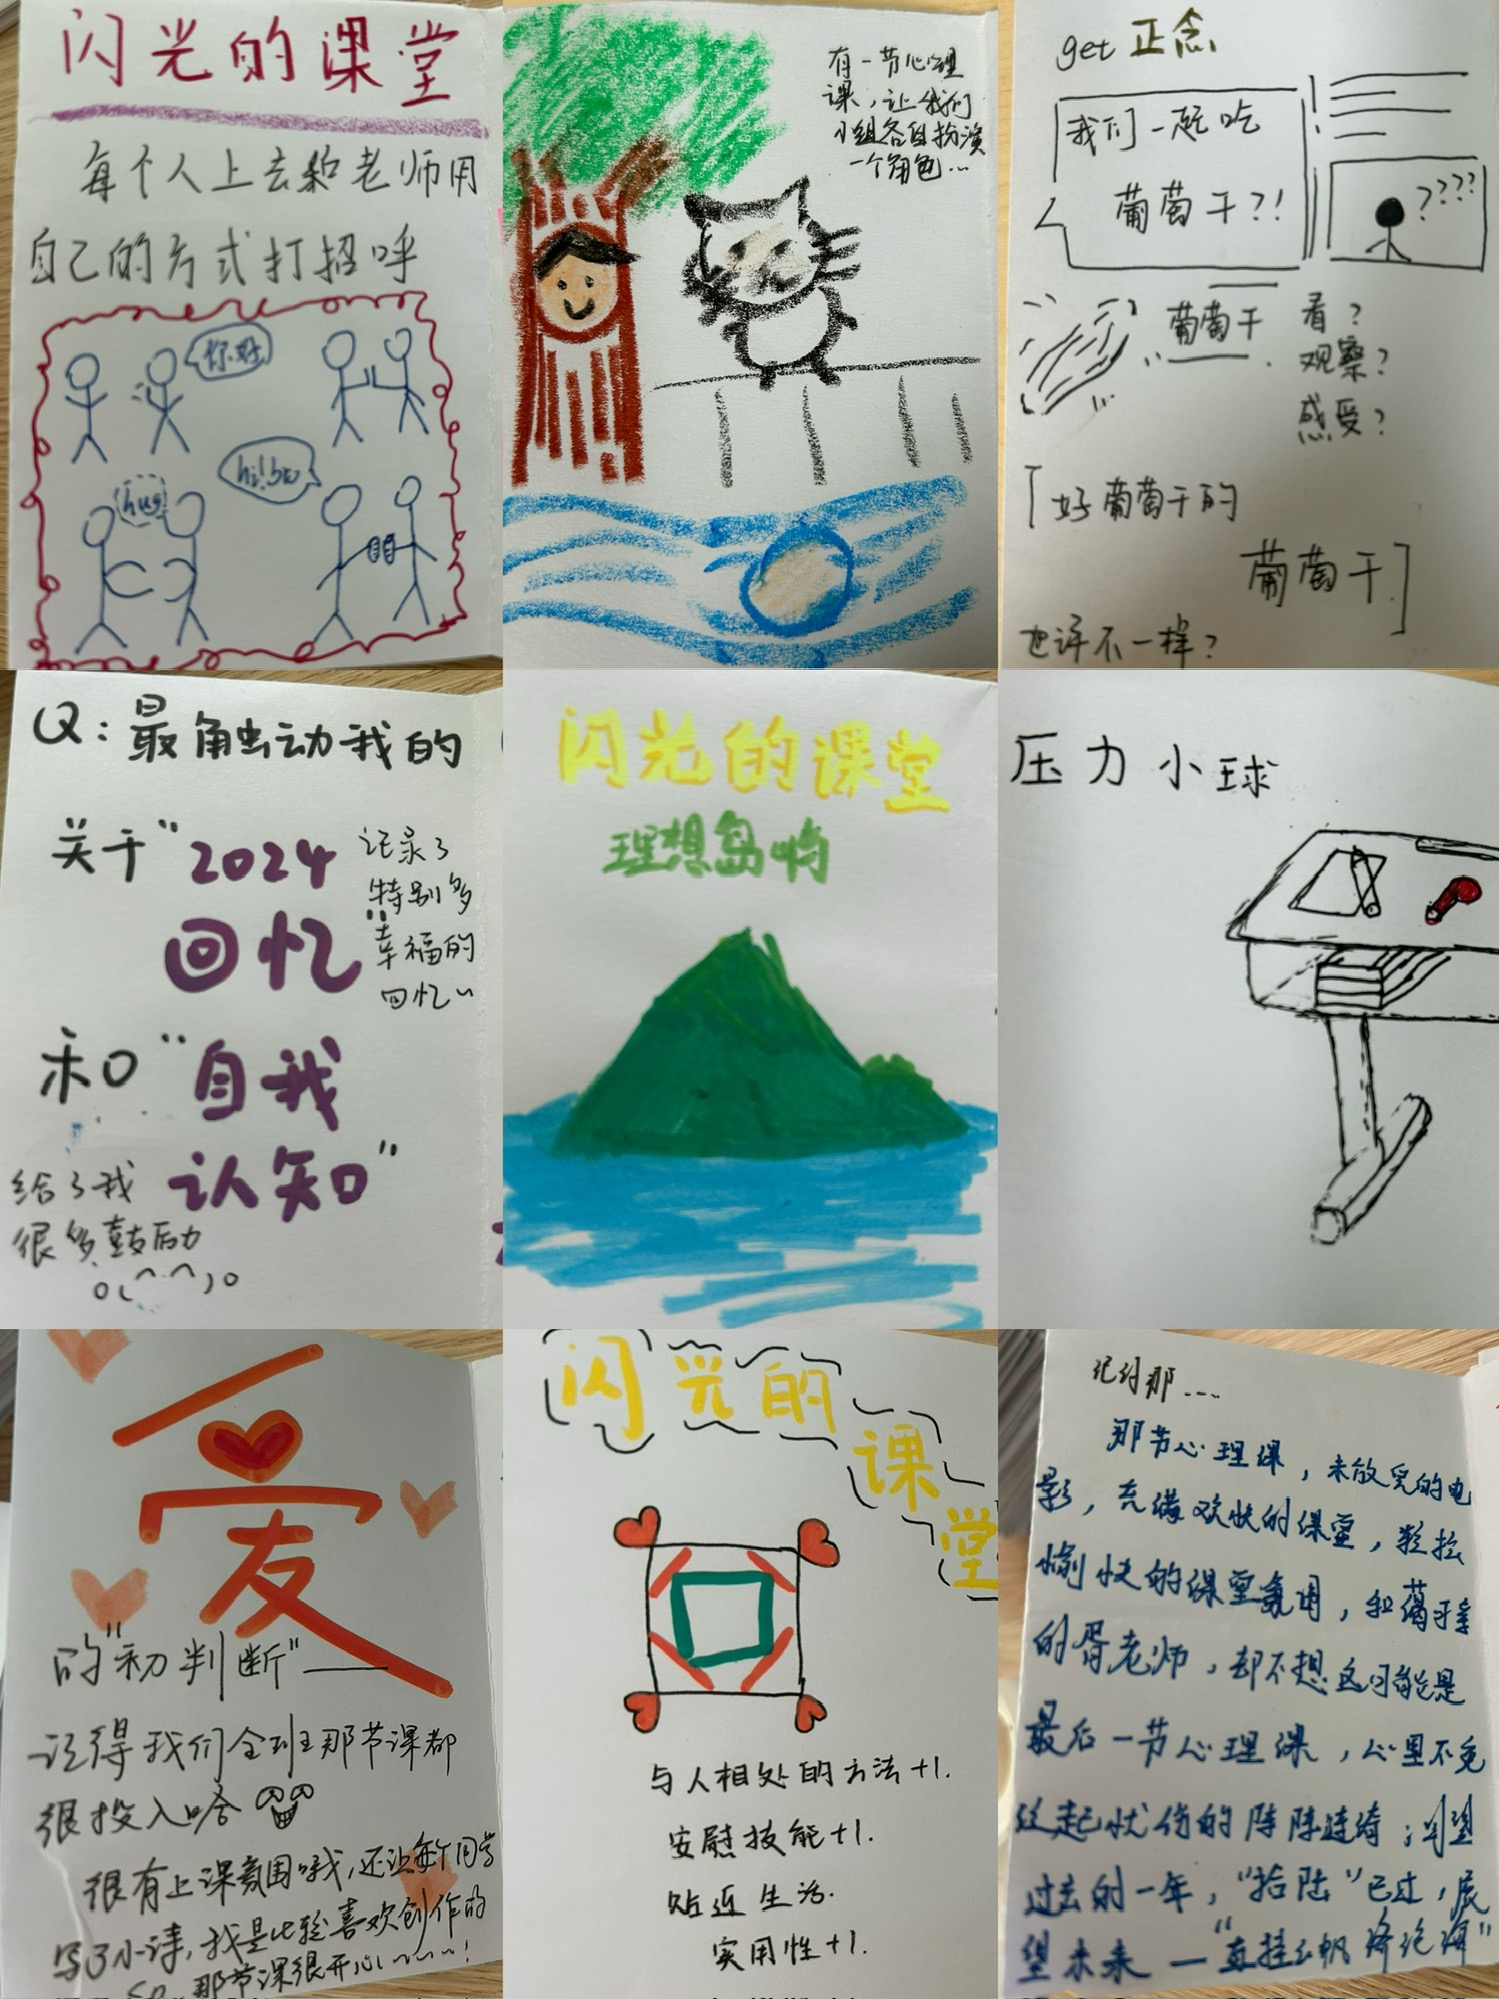 闪光的课堂
每个人上去和老师用
自己的方式打招呼
你好
hug
有一节心理
课，让我们
小组各自扮演
一个角色…
get 正念
我们一起吃
葡萄干？！
????
葡萄干
看？
观察？
感受？
「好葡萄干的
葡萄干」
也许不一样？
Q：最触动我的
关于“2024
回忆
记录了
特别多
幸福的
回忆~
和“自我
认知”
给了我
很多鼓励
闪光的课堂
理想岛屿
压力小球
爱
的“初判断”——
记得我们全班那节课都
很投入哈
很有上课氛围哦，还让每个同学
写了小诗，我是比较喜欢创作的
so 那节课很开心~~~！
闪光的
课
堂
与人相处的方法+1.
安慰技能+1.
贴近生活.
实用性+1.
记得那....
那节心理课，未放完的电
影，充满欢快的课堂，轻松
愉快的课堂氛围，和蔼可亲
的胥老师，却不想这可能是
最后一节心理课，心里不免
泛起忧伤的阵阵涟漪；
过去的一年，“拾陆”已过，展
望未来—“直挂云帆济沧海”